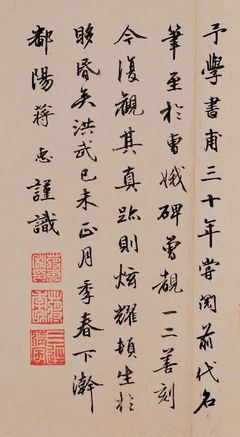 予學書甫三十年嘗閱前代名
筆至於曹娥碑曾覩一二善刻
今復觀其真跡則炫耀頓生於
眵昏矣洪武己未正月季春下澣
鄱陽蔣謹識